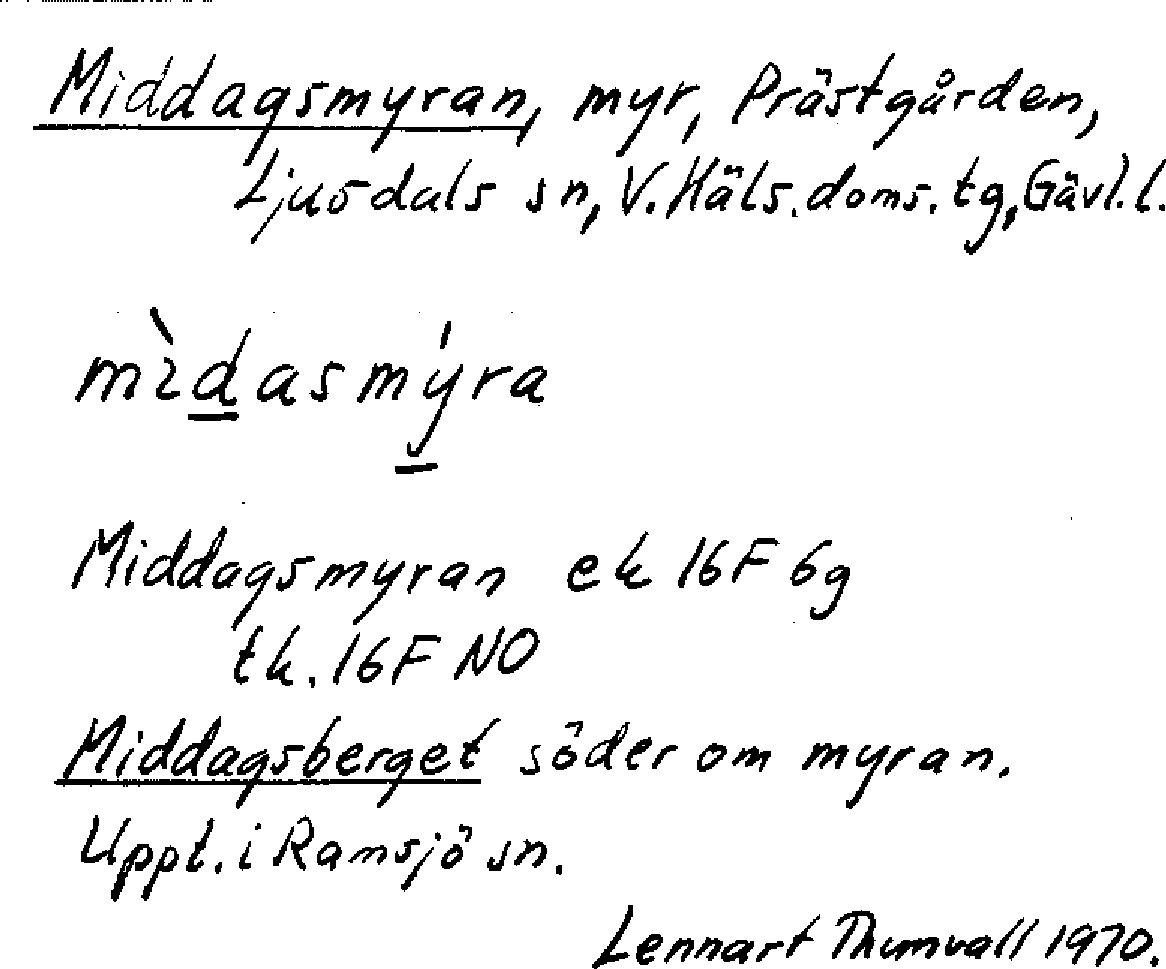 Middagsmyran, myr, Prästgården,
Ljusdals sn, V. Häls. doms. tg, Gävl. l.
mìdasmýra
Middagsmyran ek 16F 6g
tk. 16F NO
Middagsberget söder om myran.
Uppt. i Ramsjö sn.
Lennart Thumvall 1970.